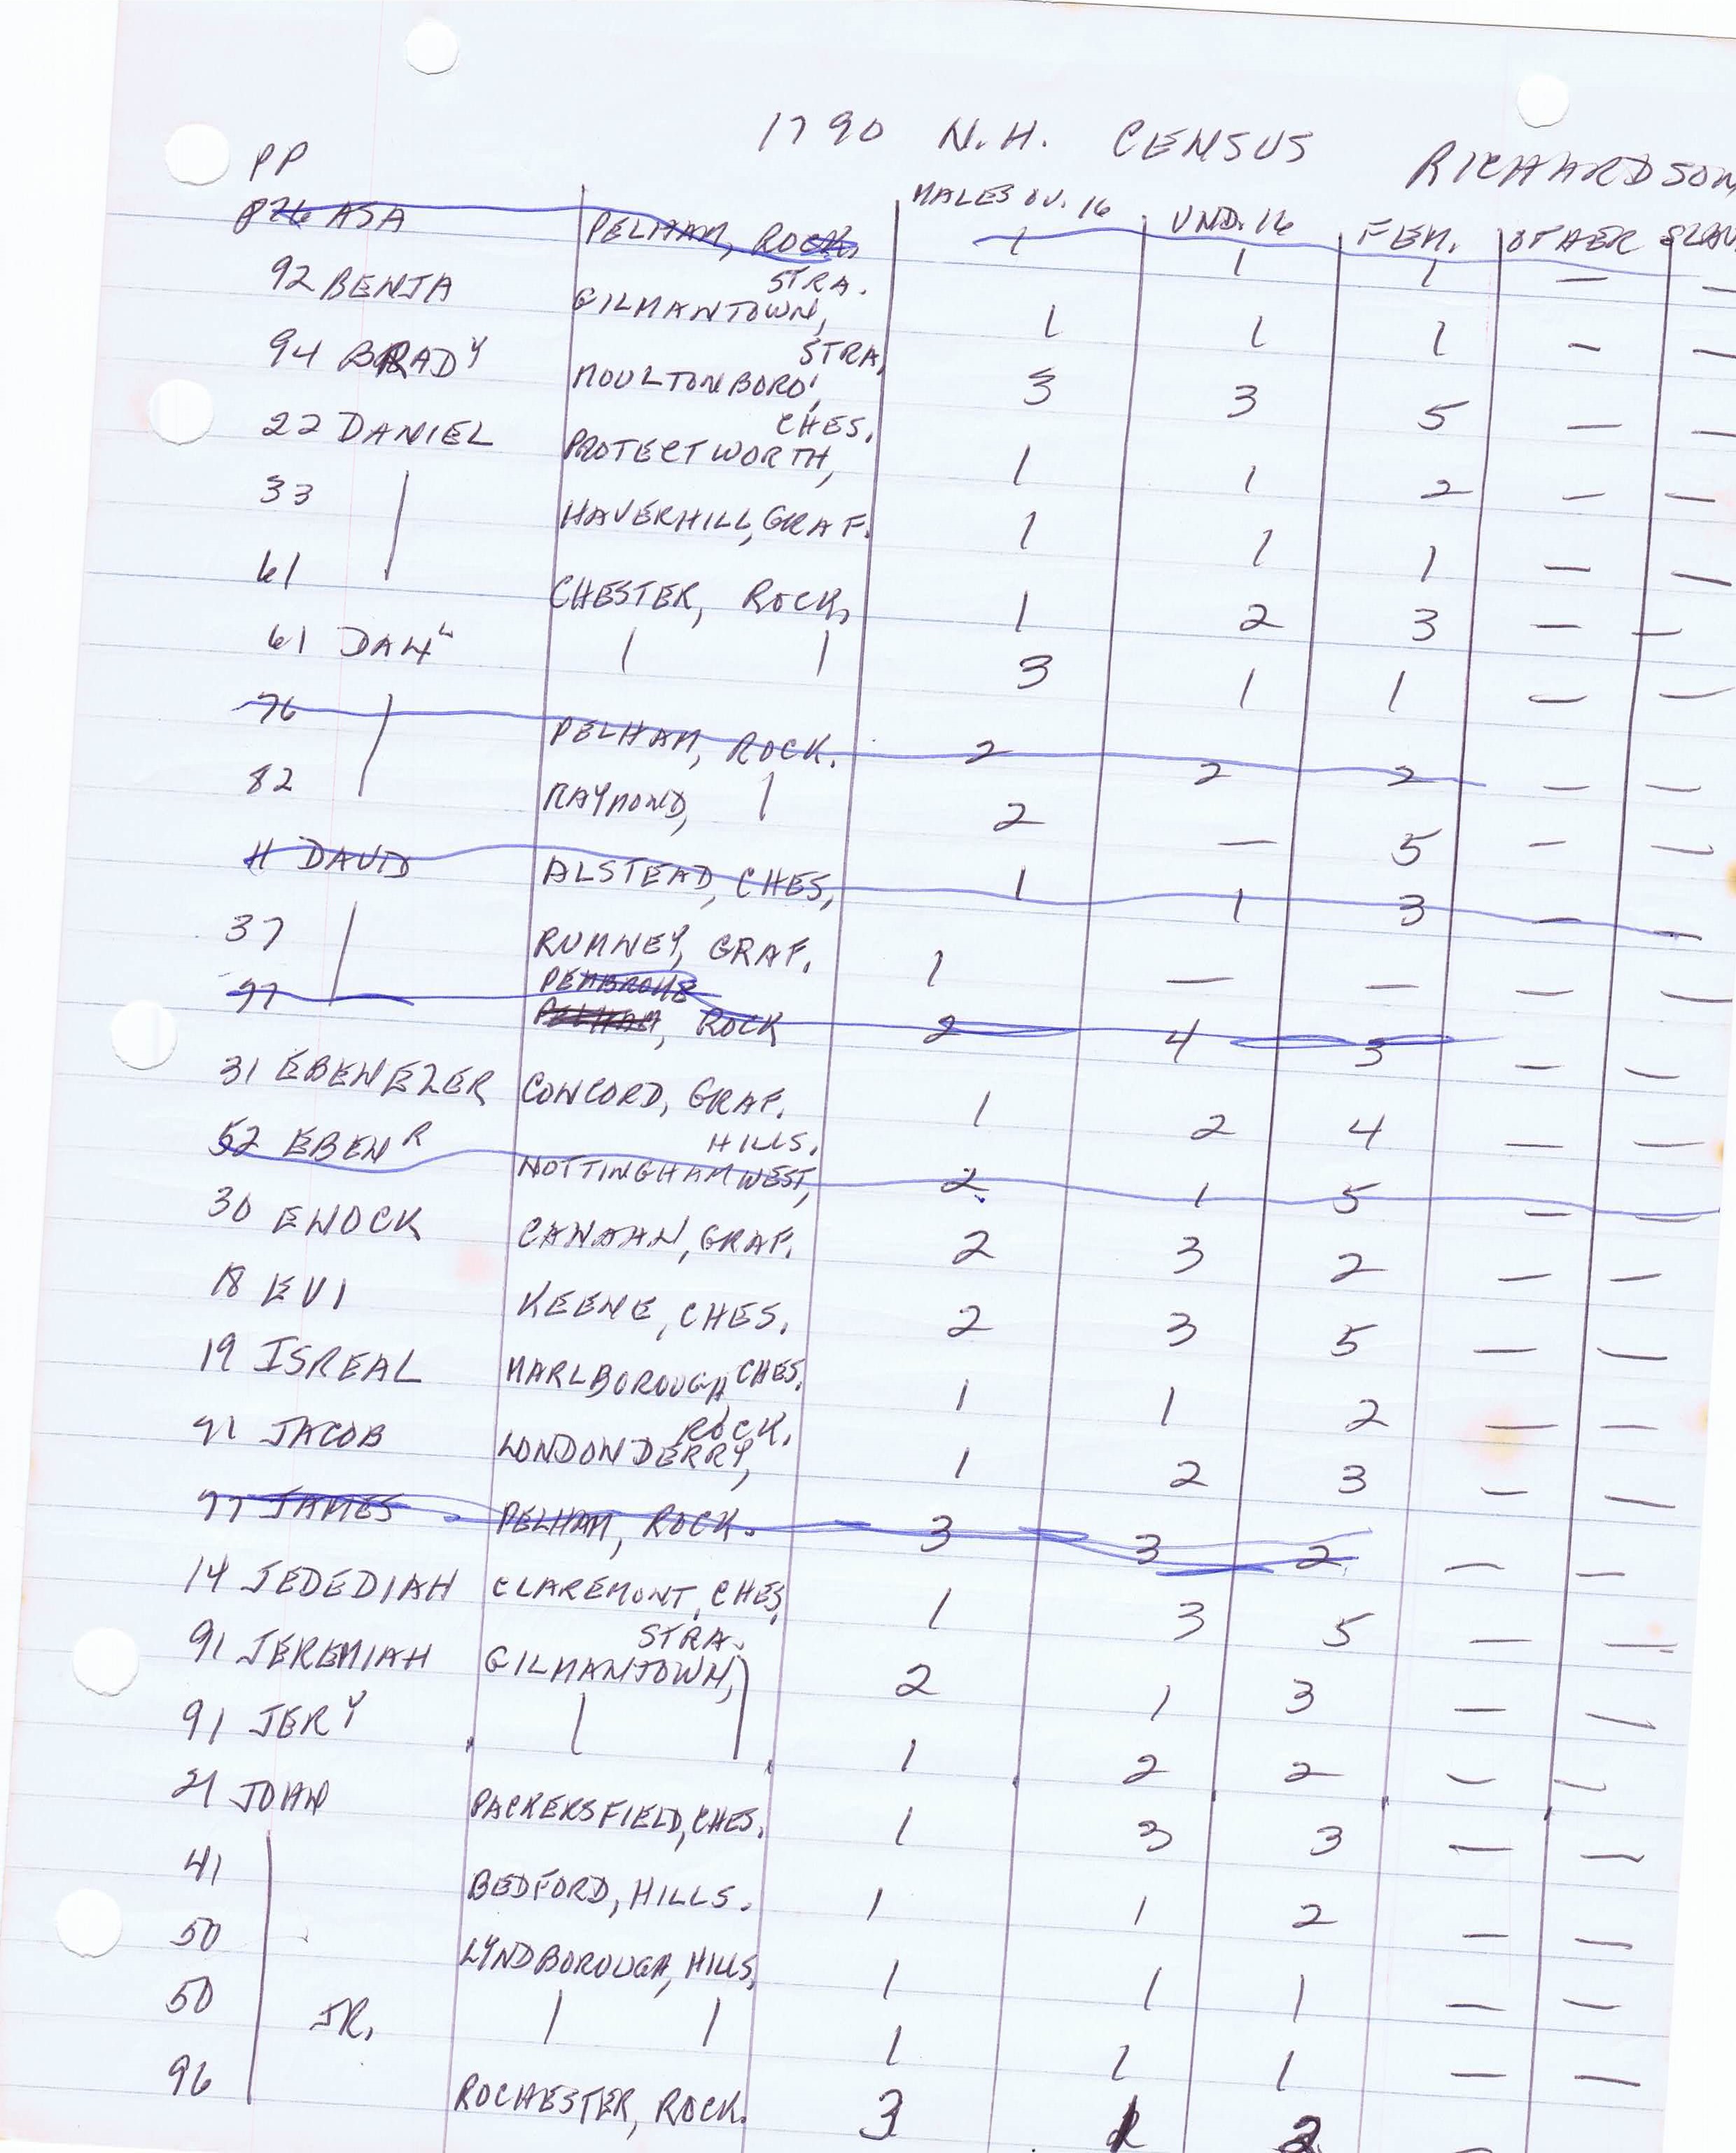 1790 N.H. CENSUS RICHARDSON,
PP MALES OV. 16 UND. 16 FEM. OTHER SLAV
76 ASA PELHAM, ROCK. 1 1 1 — —
92 BENJA GILMANTOWN, STRA. 1 1 1 — —
94 BRADY MOULTONBORO', STRA. 3 3 5 — —
22 DANIEL PROTECTWORTH, CHES. 1 1 2 — —
33 | HAVERHILL, GRAF. 1 1 1 — —
61 | CHESTER, ROCK, 1 2 3 — —
61 DANL | | 3 1 1 — —
76 | PELHAM, ROCK. 2 2 2 — —
82 | RAYMOND, | 2 — 5 — —
11 DAVID ALSTEAD, CHES, 1 1 3 — —
37 | RUMNEY, GRAF. 1 — — — —
77 | PEMBROKE PELHAM, ROCK 2 4 3 — —
31 EBENEZER CONCORD, GRAF. 1 2 4 — —
52 EBENR NOTTINGHAM WEST, HILLS. 2 1 5 — —
30 ENOCK CANAAN, GRAF. 2 3 2 — —
18 EVI KEENE, CHES. 2 3 5 — —
19 ISREAL MARLBOROUGH CHES. 1 1 2 — —
JACOB LONDONDERRY, ROCK. 1 2 3 — —
77 JAMES PELHAM, ROCK. 3 3 2 — —
14 JEDEDIAH CLAREMONT, CHES. 1 3 5 — —
91 JEREMIAH GILMANTOWN, STRA. 2 1 3 — —
91 JERY | | 1 2 2 — —
21 JOHN PACKERSFIELD, CHES. 1 3 3 — —
41 | BEDFORD, HILLS. 1 1 2 — —
50 | LYNDBOROUGH, HILLS, 1 1 1 — —
50 | JR. | | 1 1 1 — —
96 | ROCHESTER, ROCK. 3 1 2 —